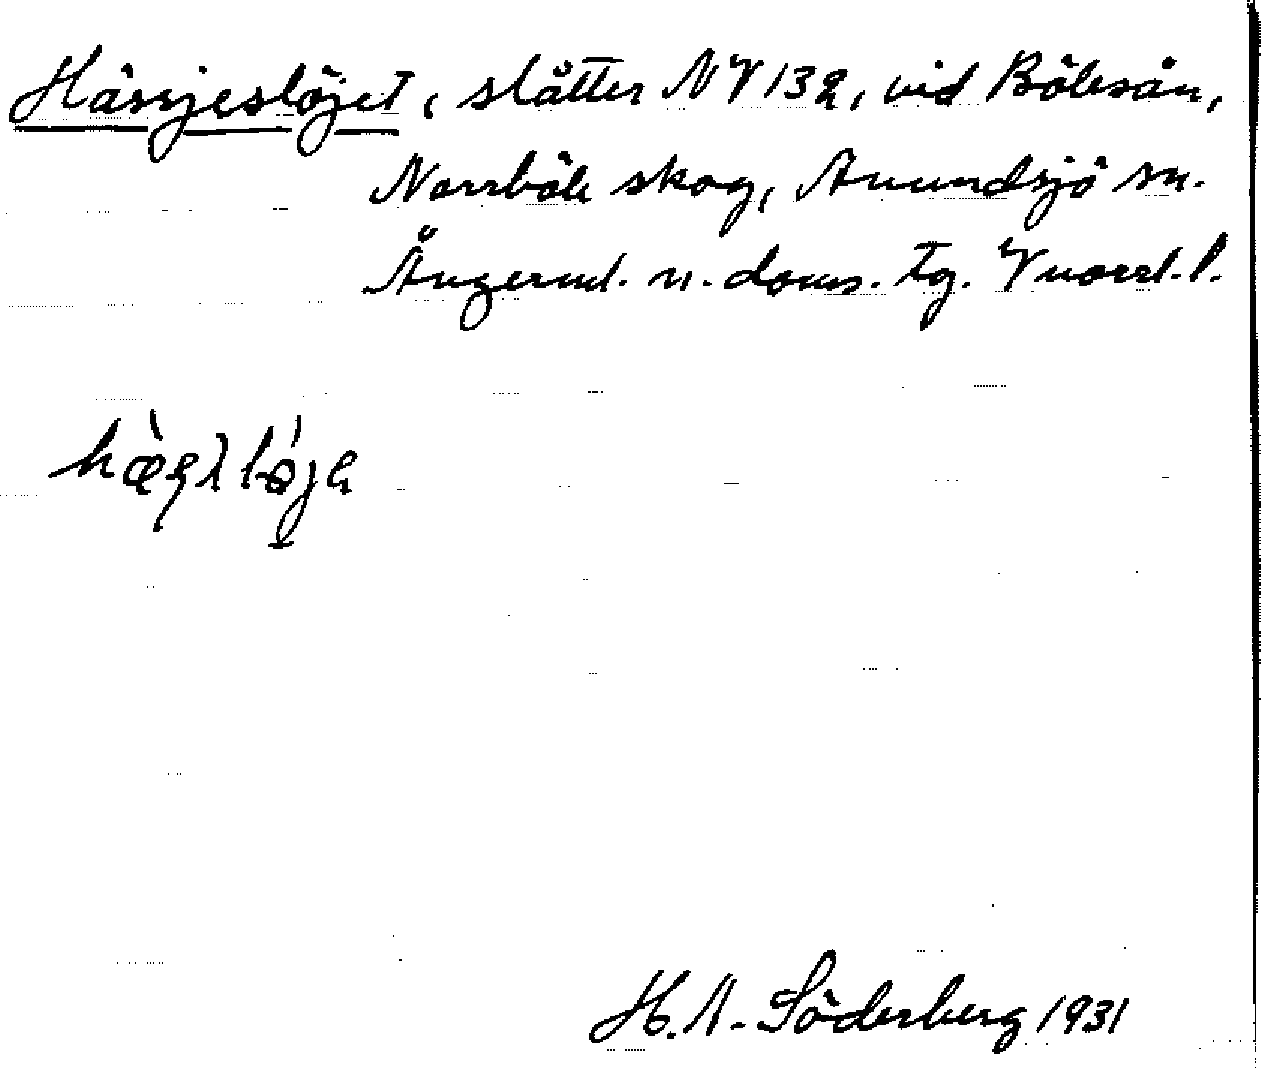 Hässjeslöjet, slåtter NV 132, vid Bölesån,
Norrböle skog, Anundsjö sn.
Ångermd. n. doms. tg.
H. N. Söderberg 1931